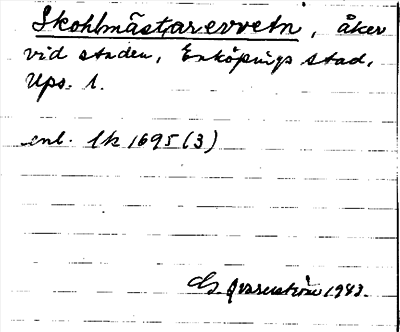 Skohlmästarevretn, åker
vid staden, Enköpings stad,
Ups. l.
enl. lk 1695 (3)
G. Qvarnström 1943.